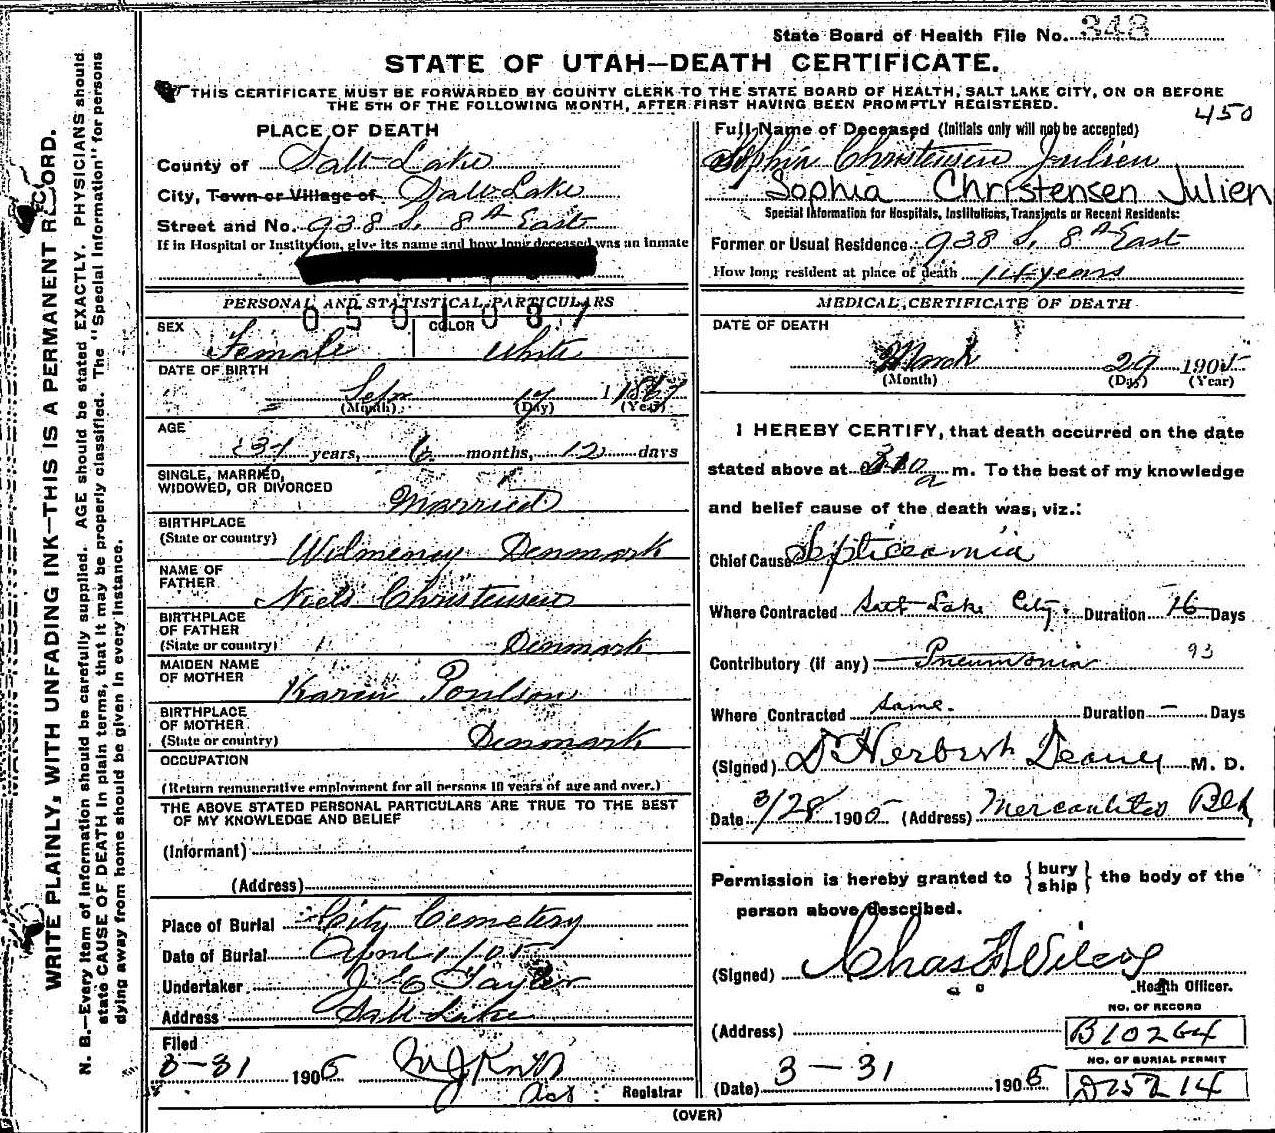 State Board of Health File No. 343
STATE OF UTAH—DEATH CERTIFICATE.
THIS CERTIFICATE MUST BE FORWARDED BY COUNTY CLERK TO THE STATE BOARD OF HEALTH, SALT LAKE CITY, ON OR BEFORE
THE 5TH OF THE FOLLOWING MONTH, AFTER FIRST HAVING BEEN PROMPTLY REGISTERED.
450
PLACE OF DEATH
County of Salt Lake
City, Town or Village of Salt Lake
Street and No. 938 S. 8th East
If in Hospital or Institution, give its name and how long deceased was an inmate
Full Name of Deceased (Initials only will not be accepted)
Sophia Christensen Julien
Sophia Christensen Julien
Special Information for Hospitals, Institutions, Transients or Recent Residents:
Former or Usual Residence: 938 S. 8th East
How long resident at place of death 14 years
PERSONAL AND STATISTICAL PARTICULARS
0501087
SEX Female
COLOR White
DATE OF BIRTH
Sep 17 1867
(Month) (Day) (Year)
AGE
37 years, 6 months, 12 days
SINGLE, MARRIED,
WIDOWED, OR DIVORCED Married
BIRTHPLACE
(State or country) Denmark
NAME OF
FATHER Niels Christensen
BIRTHPLACE
OF FATHER
(State or country) Denmark
MAIDEN NAME
OF MOTHER Karen Poulson
BIRTHPLACE
OF MOTHER
(State or country) Denmark
OCCUPATION
(Return remunerative employment for all persons 10 years of age and over.)
THE ABOVE STATED PERSONAL PARTICULARS ARE TRUE TO THE BEST
OF MY KNOWLEDGE AND BELIEF
(Informant)
(Address)
Place of Burial City Cemetery
Date of Burial April 1/05
Undertaker J E Taylor
Address Salt Lake
Filed
3-31 1905
Registrar
MEDICAL CERTIFICATE OF DEATH
DATE OF DEATH
March 29 1905
(Month) (Day) (Year)
I HEREBY CERTIFY, that death occurred on the date
stated above at m. To the best of my knowledge
and belief cause of the death was, viz.:
Chief Cause Septicaemia
Where Contracted Salt Lake City. Duration 16 Days
Contributory (if any) Pneumonia 93
Where Contracted same. Duration — Days
(Signed) D Herbert M. D.
Date 3/28 1905 (Address) Mercantile Blk
Permission is hereby granted to { bury ship } the body of the
person above described.
(Signed) Chas Wilcox
Health Officer.
(Address)
NO. OF RECORD
B10264
NO. OF BURIAL PERMIT
D15214
(Date) 3-31 1905
(OVER)
WRITE PLAINLY, WITH UNFADING INK—THIS IS A PERMANENT RECORD.
N. B.—Every item of information should be carefully supplied. AGE should be stated EXACTLY. PHYSICIANS should
state CAUSE OF DEATH in plain terms, that it may be properly classified. The "Special Information" for persons
dying away from home should be given in every instance.